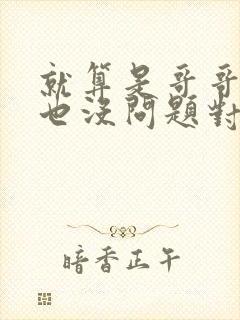 就算是哥哥
也沒問題對
暗香正午